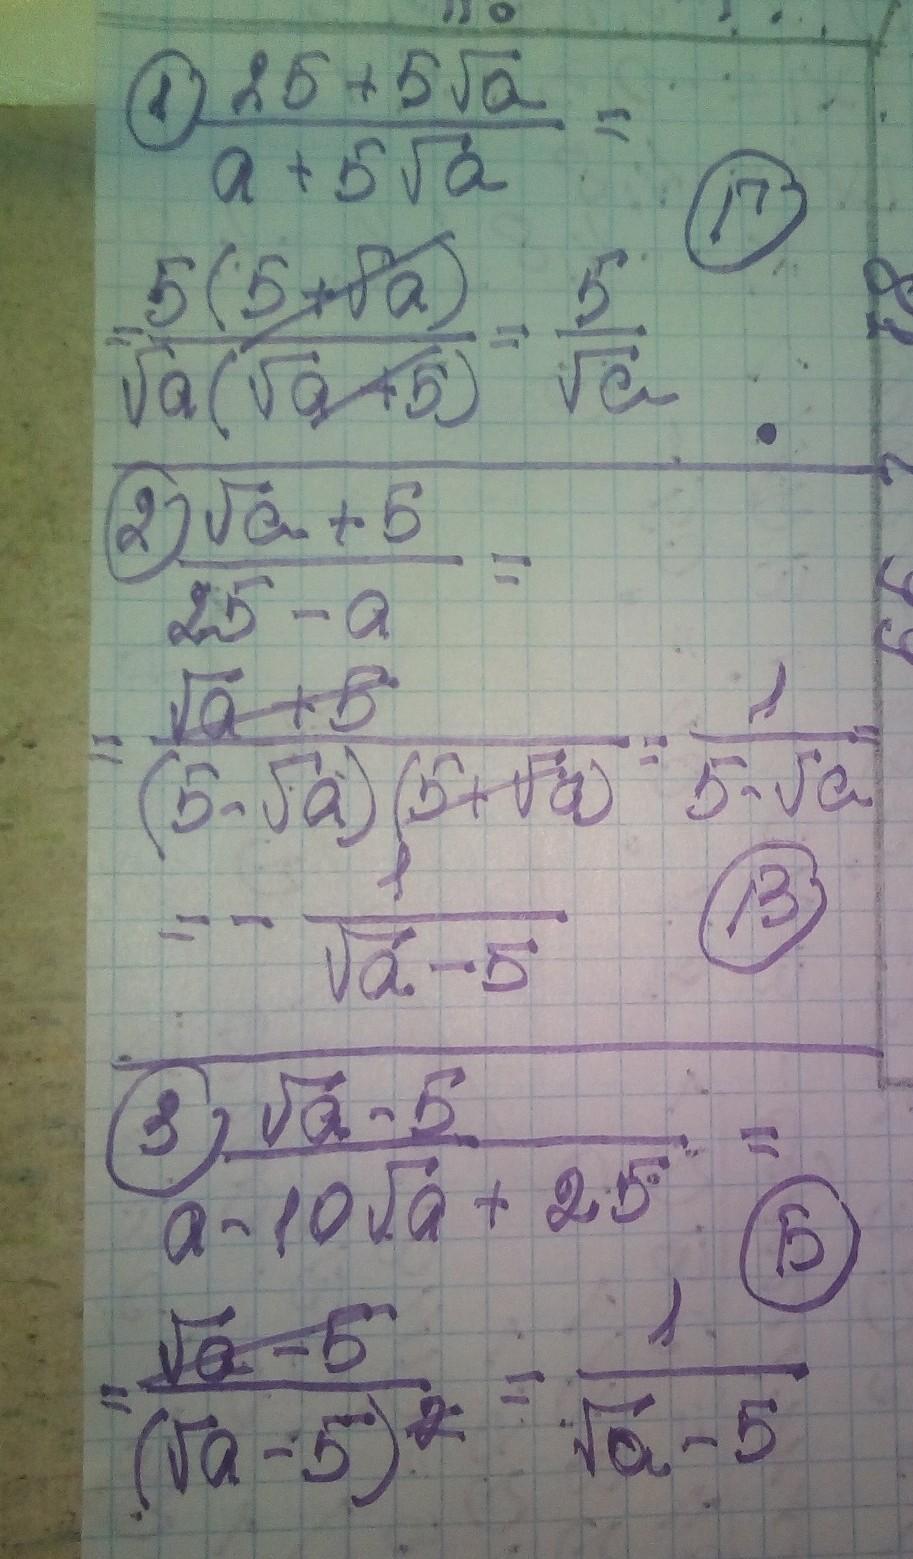 ① (25 + 5√a) / (a + 5√a) =
Г
= 5(5 + √a) / √a(√a + 5) = 5 / √a
② (√a + 5) / (25 - a) =
= (√a + 5) / (5 - √a)(5 + √a) = 1 / (5 - √a) =
= - 1 / (√a - 5)
В
③ (√a - 5) / (a - 10√a + 25) =
Б
= (√a - 5) / (√a - 5)² = 1 / (√a - 5)